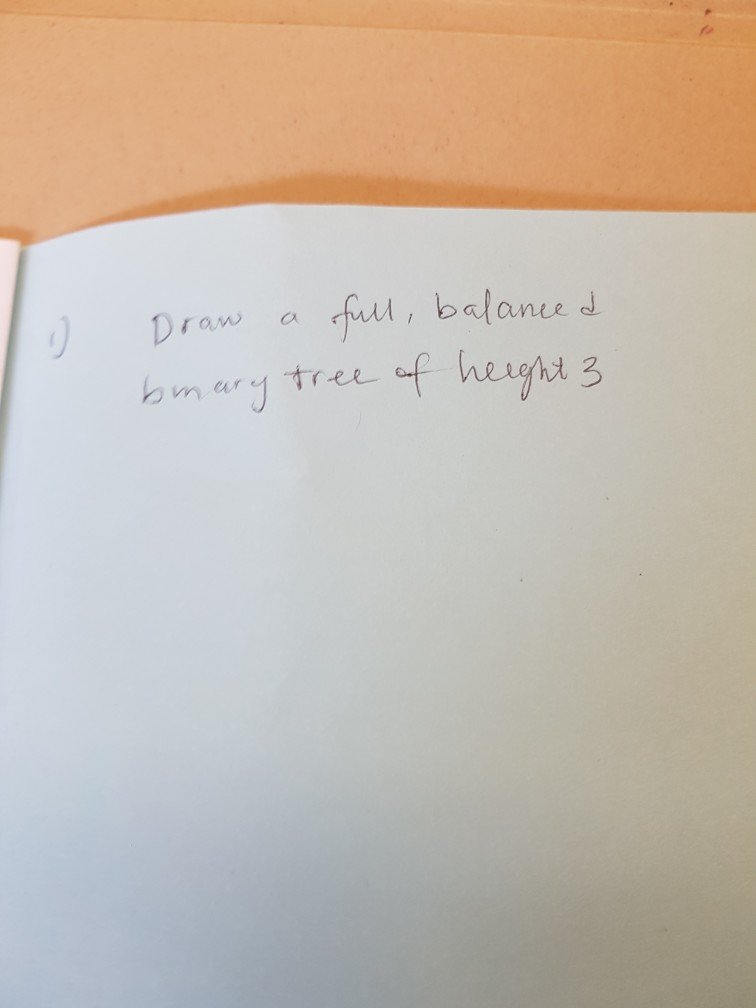 1) Draw a full, balanced
binary tree of height 3